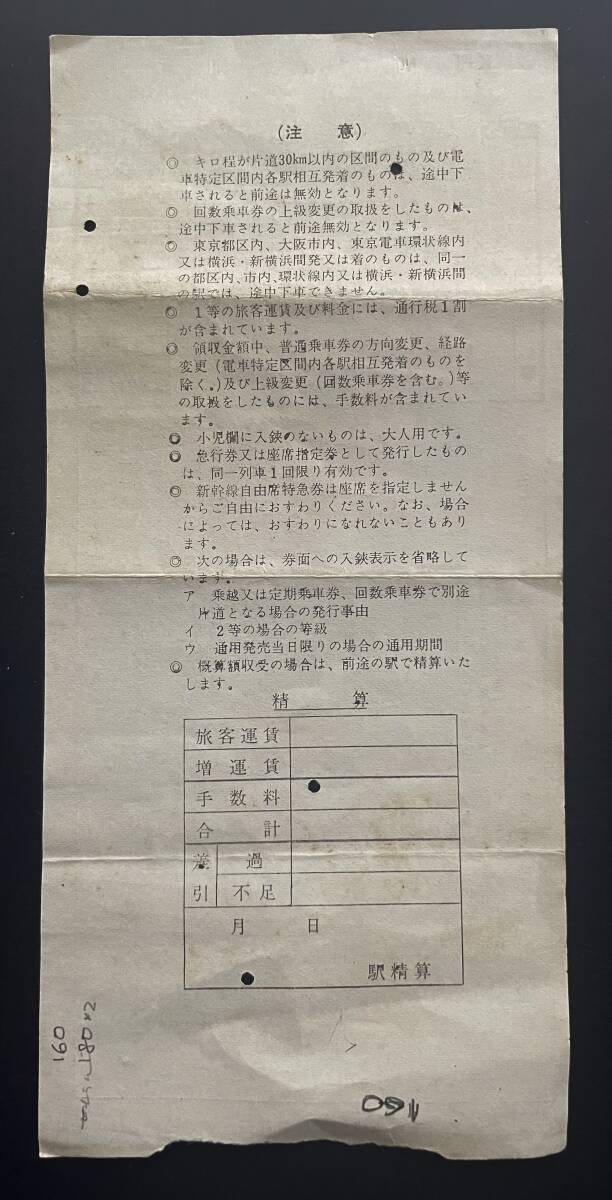 (注　意)
◎　キロ程が片道30km以内の区間のもの及び電
車特定区間内各駅相互発着のものは、途中下
車されると前途は無効となります。
◎　回数乗車券の上級変更の取扱をしたものは、
途中下車されると前途無効となります。
◎　東京都区内、大阪市内、東京電車環状線内
又は横浜・新横浜間発又は着のものは、同一
の都区内、市内、環状線内又は横浜・新横浜間
の駅では、途中下車できません。
◎　1等の旅客運賃及び料金には、通行税1割
が含まれています。
◎　領収金額中、普通乗車券の方向変更、経路
変更（電車特定区間内各駅相互発着のものを
除く。）及び上級変更（回数乗車券を含む。）等
の取扱をしたものには、手数料が含まれてい
ます。
◎　小児欄に入鋏のないものは、大人用です。
◎　急行券又は座席指定券として発行したもの
は、同一列車1回限り有効です。
◎　新幹線自由席特急券は座席を指定しません
からご自由におすわりください。なお、場合
によっては、おすわりになれないこともあり
ます。
◎　次の場合は、券面への入鋏表示を省略して
います。
ア　乗越又は定期乗車券、回数乗車券で別途
片道となる場合の発行事由
イ　2等の場合の等級
ウ　通用発売当日限りの場合の通用期間
◎　概算額収受の場合は、前途の駅で精算いた
します。
精　算
旅客運賃
増運賃
手数料
合計
差引
過
不足
月　日
駅精算
160